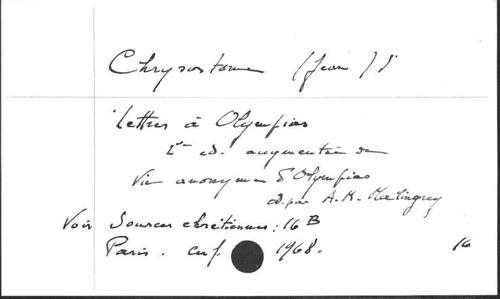 Chrysostome (Jean) S
Lettres à Olympias
2me ed. augmentée de
Vie anonyme d'Olympias
ed. par A. M. Malingrey
Voir Sources chrétiennes: 16 B
Paris. cerf. 1968. 16